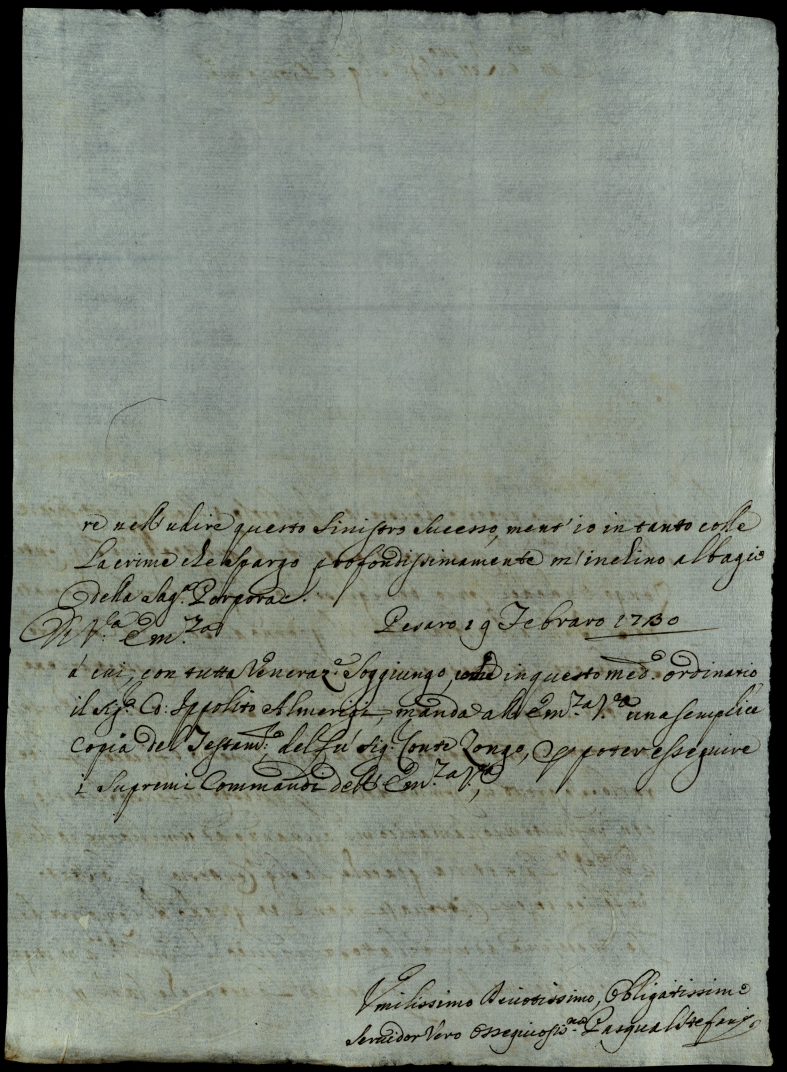 re nell'udire questo sinistro sucesso, ment'io in tanto colle
Lacrime che spargo profondissimamente m'inchino al bagio
della Sag.ª Porpora
Di V.ª Em.za Pesaro 19 Febraro 1730
à cui, con tutta Veneraz.e soggiungo, come in questo med.o ordinario
il Sig.r Co: Ippolito Almerici, manda all'Em.za V.ra una semplice
Copia del Testam.to del fù Sig. Conte Zongo, p poter esseguire
i Supremi Commandi dell'Em.za V.ra
Vmilissimo Deuotissimo, Obligatissimo
Seruidor Vero Ossequiosis.mo Pasqual Stefani